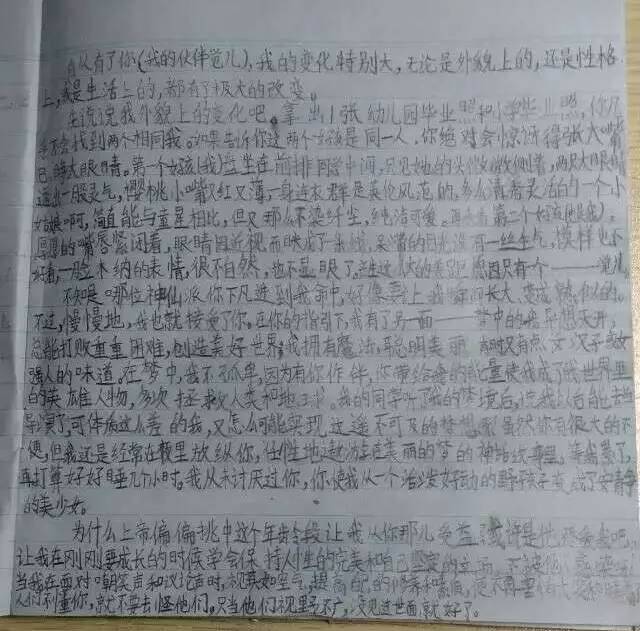 自从有了你(我的伙伴觉儿),我的变化特别大,无论是外貌上的,还是性格
上,或是生活上的,都有了极大的改变。
先说说我外貌上的变化吧。拿出1张幼儿园毕业照和小学毕业照,你
会找到两个相同我。如果告诉你这两个女孩是同一人,你绝对会惊讶得张大嘴
巴睁大眼睛。第一个女孩(我)坐在前排同学中间,只见她的头微微侧着,两只大眼睛
透出一股灵气,樱桃小嘴又红又薄,一身连衣群是英伦风范的,多么清秀灵活的一个小
姑娘啊,简直能与童星相比,但又那么不染纤尘,纯洁可爱。再来看第二个女孩(也是我)。
厚厚的嘴唇紧闭着,眼睛因近视而眯成了一条线,呆滞的目光没有一丝生气,模样也不
好看,一脸木纳的表情,很不自然,也不显眼了。产生这么大的差别,原因只有个——觉儿
不知是哪位神仙派你下凡进到我命中,好像要让我瞬间长大、变成熟似的。
不过,慢慢地,我也就接受了你。在你的指引下,我有了另一面——梦中的我异想天开,
总能打败重重困难,创造美好世界;我拥有魔法,聪明美丽,有时又有点女汉子或女
强人的味道。在梦中,我不孤单,因为有你作伴,你带给我的能量使我成了世界里
的英雄人物,多次拯救人类和地球。我的同学听了我的梦境后,
导演了,可体质这么差的我,又怎么可能实现这遥不可及的梦想。虽然你有很大的不
便,但我还是经常在教里放纵你,任性地遨游在美丽的梦的神话故事里。等尚累了,
再打算好好睡几个小时。我从未讨厌过你,你使我从一个活泼好动的野孩子变成了安静
的美少女。
为什么上帝偏偏挑中这个年龄段让我从你那儿受益?或许是他
让我在刚刚要成长的时候学会保持人性的完美和自己坚定的立场,不
当我在面对嘲笑声和议论声时,视其如空气,提高自己的修养和素质,
人们不懂你,就不要去怪他们,只当他们视野不广,没见过世面就好了。